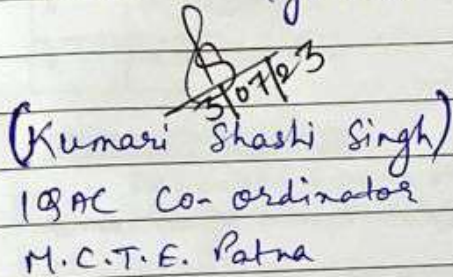 3/07/23
(Kumari Shashi Singh)
IQAC Co-ordinator
M.C.T.E. Patna